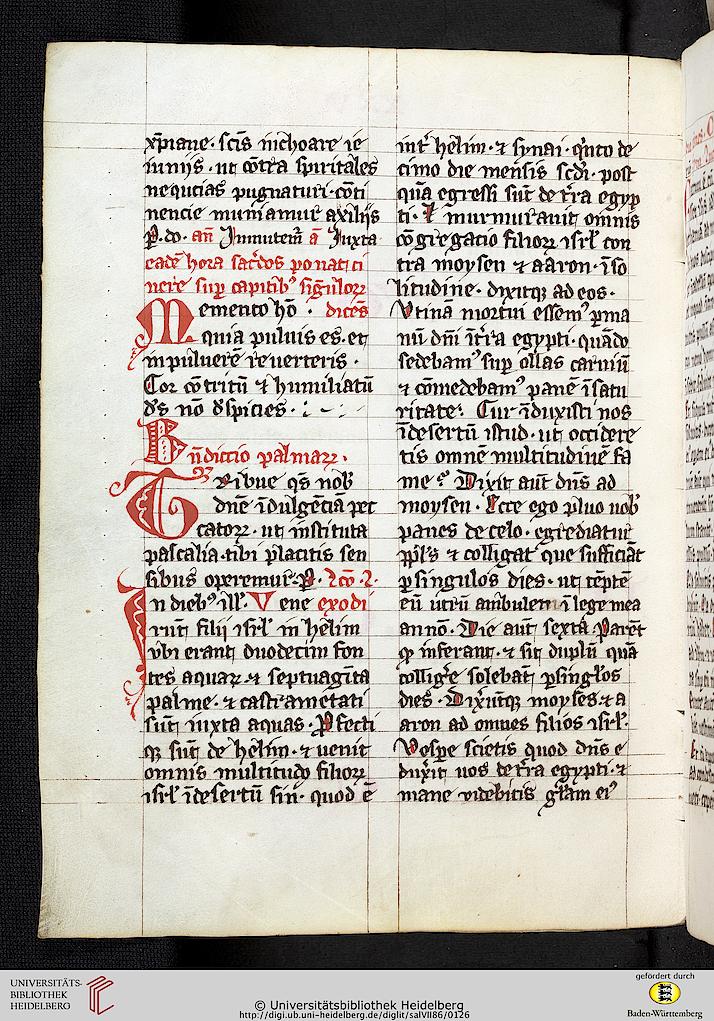 xp̄iane · sc̄is inchoare ie
iuniis · ut cōtra spiritales
nequcias pugnaturi · cōti
nencie muniamur̄ axiliis
P̲ · do · an̄ Inmutem̄ a᷑ Iuxta
eadē hora sac̄dos ponat ci
nere sup̲ capitib᷒ siḡuloꝝ
Memento hō · dicēs
quia puluis es · et
in puluerē reuerteris ·
Cor cōtritū ⁊ humiliatū
d̄s nō dspicies ·
Bn̄dictio palmaꝝ ·
Tribue qs̄ nob᷒
dn̄e īdulgēciā pec
catoꝝ · ut instituta
pascalia · tibi placitis sen
sibus operemur̄ · P̲ ·
In dieb᷒ ill᷒ · Vene exodi
rūt filii isrl̄ in helim
vbi erant duodecim fon
tes aquaꝝ · ⁊ septuagīta
palme · ⁊ castrametati
sūt iuxta aquas · P̲fecti
qꝫ sūt de hēlim · ⁊ uenit
omnis multitudo filioꝝ
isrl̄ īdesertū sin · quod ē
int᷑ hēlim · ⁊ synai · qⁱnto de
cimo die mēnsis sc̄di · post
quā egressi sūt de t᷑ra egyp
ti · Et murmurauit omnis
cōgregacio filioꝝ isrl̄ con
tra moysen ⁊ aaron · ī so
litudine · dixitqꝫ ad eos ·
Vtinā mortui essem᷒ p̲ ma
nū dn̄i ī t᷑ra egypti · quādo
sedebam᷒ sup̲ ollas carniū
⁊ cōmedebam᷒ panē ī satu
ritate · Cur īduxisti nos
īdesertū istud · ut occidere
tis omnē multitudinē fa
me · Dixit aut̄ dn̄s ad
moysen · Ecce ego pluo uob᷒
panes de celo · egrediatur
ppl̄s ⁊ colligat que sufficiāt
p̲ singulos dies · ut tēpte
eū utrū ambulet ī lege mea
an nō · Die aut̄ sexta Parēt
qꝫ inferant · ⁊ sit duplū quā
collig᷑e solebāt p̲ singl̄os
dies · Dixerūtqꝫ moyses · ⁊ a
aron ad omnes filios isrl̄ ·
Vesp̲e scietis quod dn̄s e
duxit uos de t᷑ra egypti · ⁊
mane videbitis gl̄am ei᷒
UNIVERSITÄTS-
BIBLIOTHEK
HEIDELBERG
© Universitätsbibliothek Heidelberg
http://digi.ub.uni-heidelberg.de/diglit/salVII86/0126
gefördert durch
Baden-Württemberg